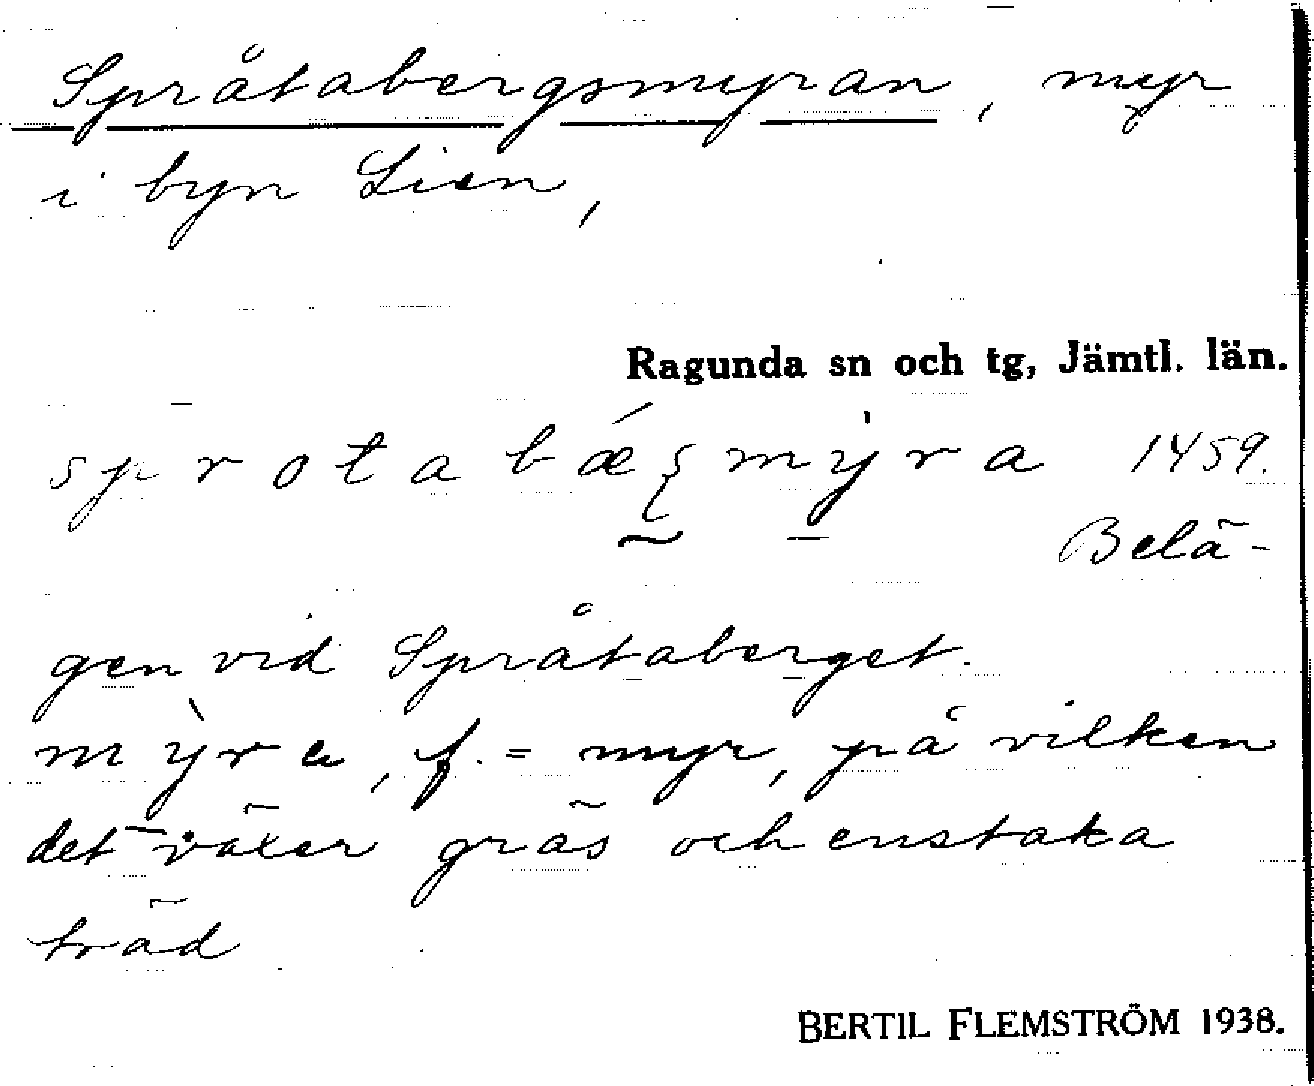 Språtabergsmyran, myr
i byn Lien,
Ragunda sn och tg, Jämtl. län.
sprotabǽʂmy̍ra 1459.
Belä-
gen vid Språtaberget.
mỳra, f. = myr, på vilken
det växer gräs och enstaka
träd
BERTIL FLEMSTRÖM 1938.